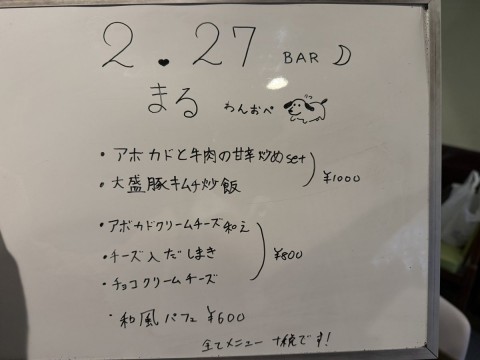 2.27 BAR
まる わんおぺ
・アボカドと牛肉の甘辛炒めset
・大盛豚キムチ炒飯
¥1000
・アボカドクリームチーズ和え
・チーズ入だしまき
・チョコクリームチーズ
¥800
・和風パフェ ¥600
全てメニュー +税です!